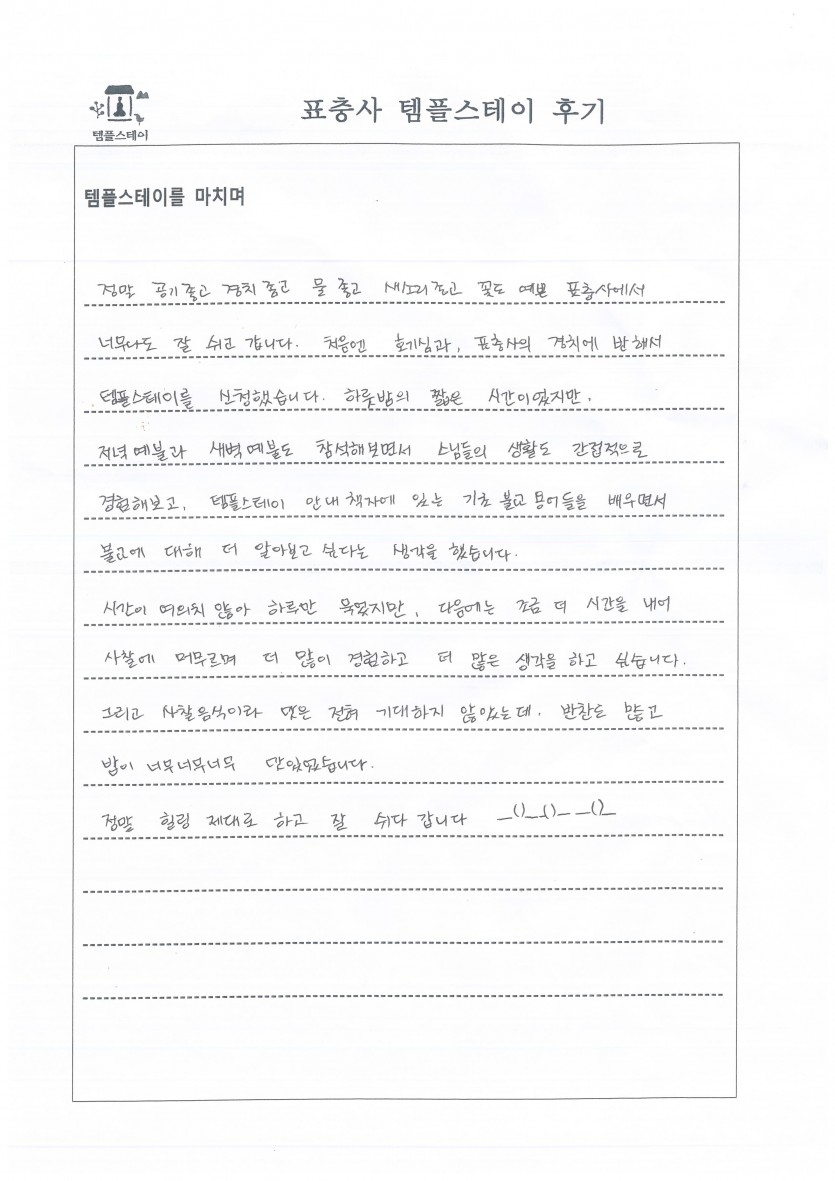 템플스테이
표충사 템플스테이 후기
템플스테이를 마치며
정말 공기좋고 경치좋고 물 좋고 새소리좋고 꽃도 예쁜 표충사에서
너무나도 잘 쉬고 갑니다. 처음엔 호기심과, 표충사의 경치에 반해서
템플스테이를 신청했습니다. 하룻밤의 짧은 시간이었지만,
저녁예불과 새벽예불도 참석해보면서 스님들의 생활도 간접적으로
경험해보고, 템플스테이 안내책자에 있는 기초 불교 용어들을 배우면서
불교에 대해 더 알아보고 싶다는 생각을 했습니다.
시간이 여의치 않아 하루만 묵었지만, 다음에는 조금 더 시간을 내어
사찰에 머무르며 더 많이 경험하고 더 많은 생각을 하고 싶습니다.
그리고 사찰음식이라 맛은 전혀 기대하지 않았는데. 반찬도 많고
밥이 너무너무너무 맛있었습니다.
정말 힐링 제대로 하고 잘 쉬다 갑니다 _()_ _()_ _()_